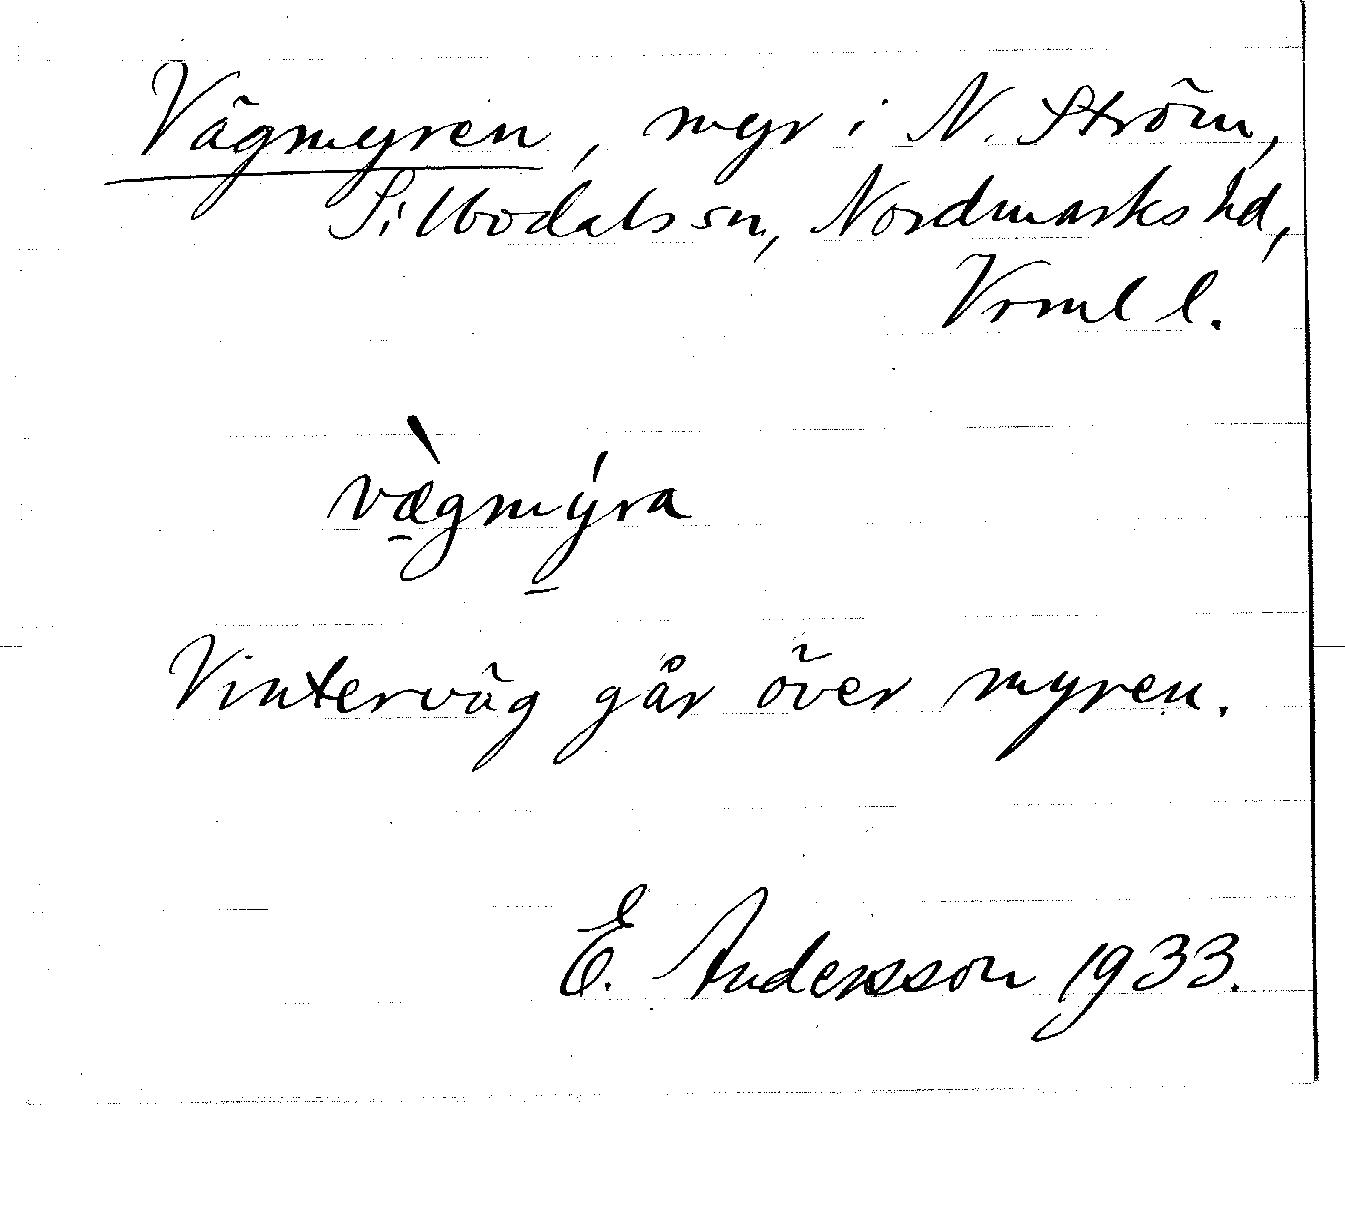 Vägmyren, myr i N. Ström,
Silbodals sn, Nordmarks hd,
Vrml l.
væ̀gmýra
Vinterväg går över myren.
E. Andersson 1933.